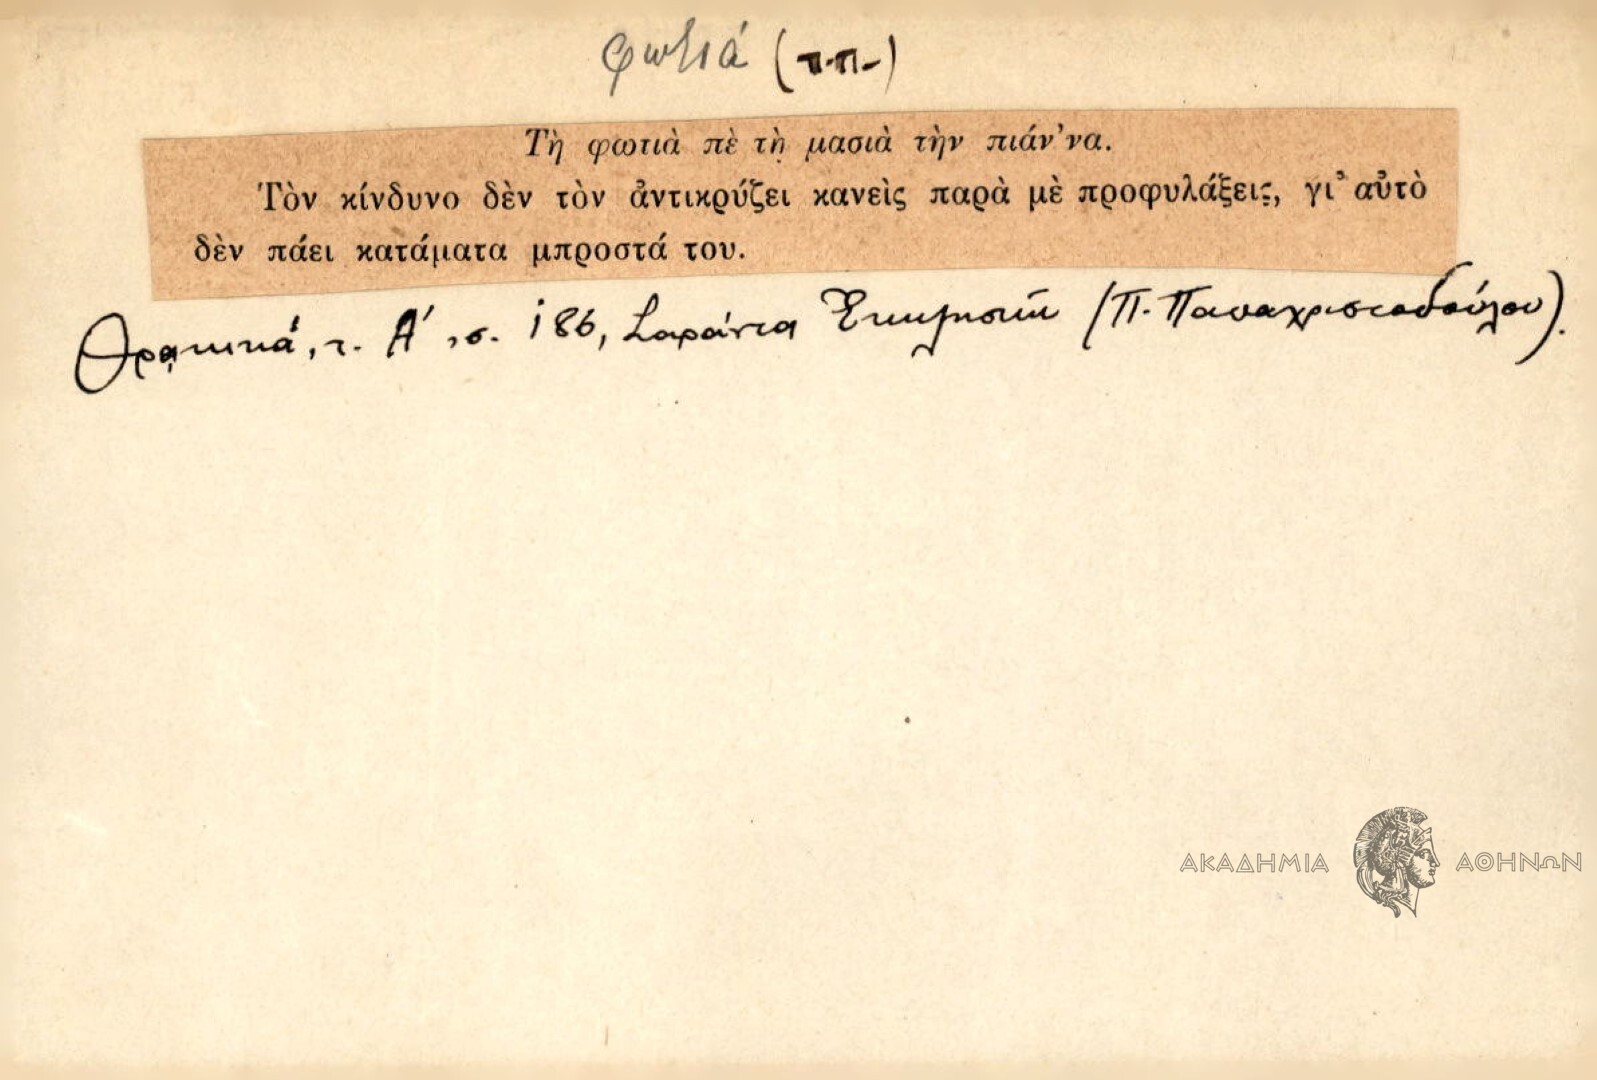 φωτιά (π.π.)
Τὴ φωτιὰ πὲ τὴ μασιὰ τὴν πιάν'να.
Τὸν κίνδυνο δὲν τὸν ἀντικρύζει κανεὶς παρὰ μὲ προφυλάξεις, γι' αὐτὸ
δὲν πάει κατάματα μπροστά του.
Θρακικά, τ. Α', σ. 186, Σαράντα Ἐκκλησιαί (Π. Παπαχριστοδούλου).
ΑΚΑΔΗΜΙΑ ΑΘΗΝΩΝ